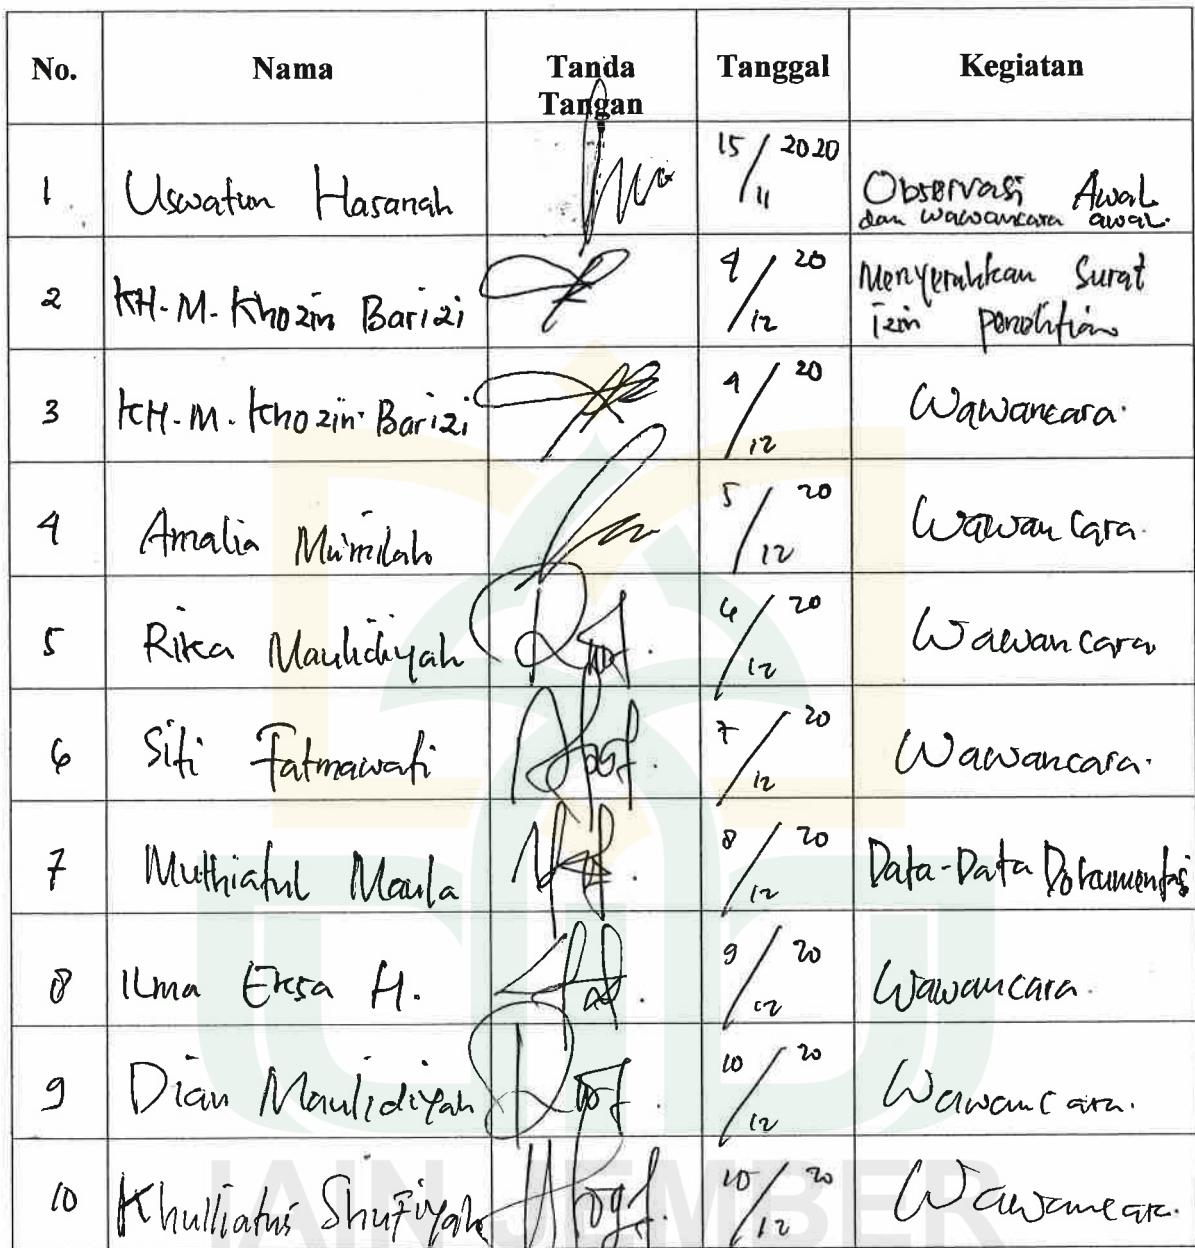 No. Nama Tanda Tangan Tanggal Kegiatan
1 Uswatun Hasanah 15/11 2020 Observasi Awal
dan wawancara awal.
2 KH. M. Khozin Barizi 4/12 20 Menyerahkan Surat
izin penelitian
3 KH. M. Khozin Barizi 4/12 20 Wawancara.
4 Amalia Mu'milah 5/12 20 Wawancara.
5 Rika Maulidiyah 6/12 20 Wawancara
6 Siti Fatmawati 7/12 20 Wawancara.
7 Muthiatul Maula 8/12 20 Data-Data Dokumentasi
8 Ilma Eksa H. 9/12 20 Wawancara.
9 Dian Maulidiyah 10/12 20 Wawancara.
10 Khulliatus Shufiyah 10/12 20 Wawancara.
IAIN JEMBER